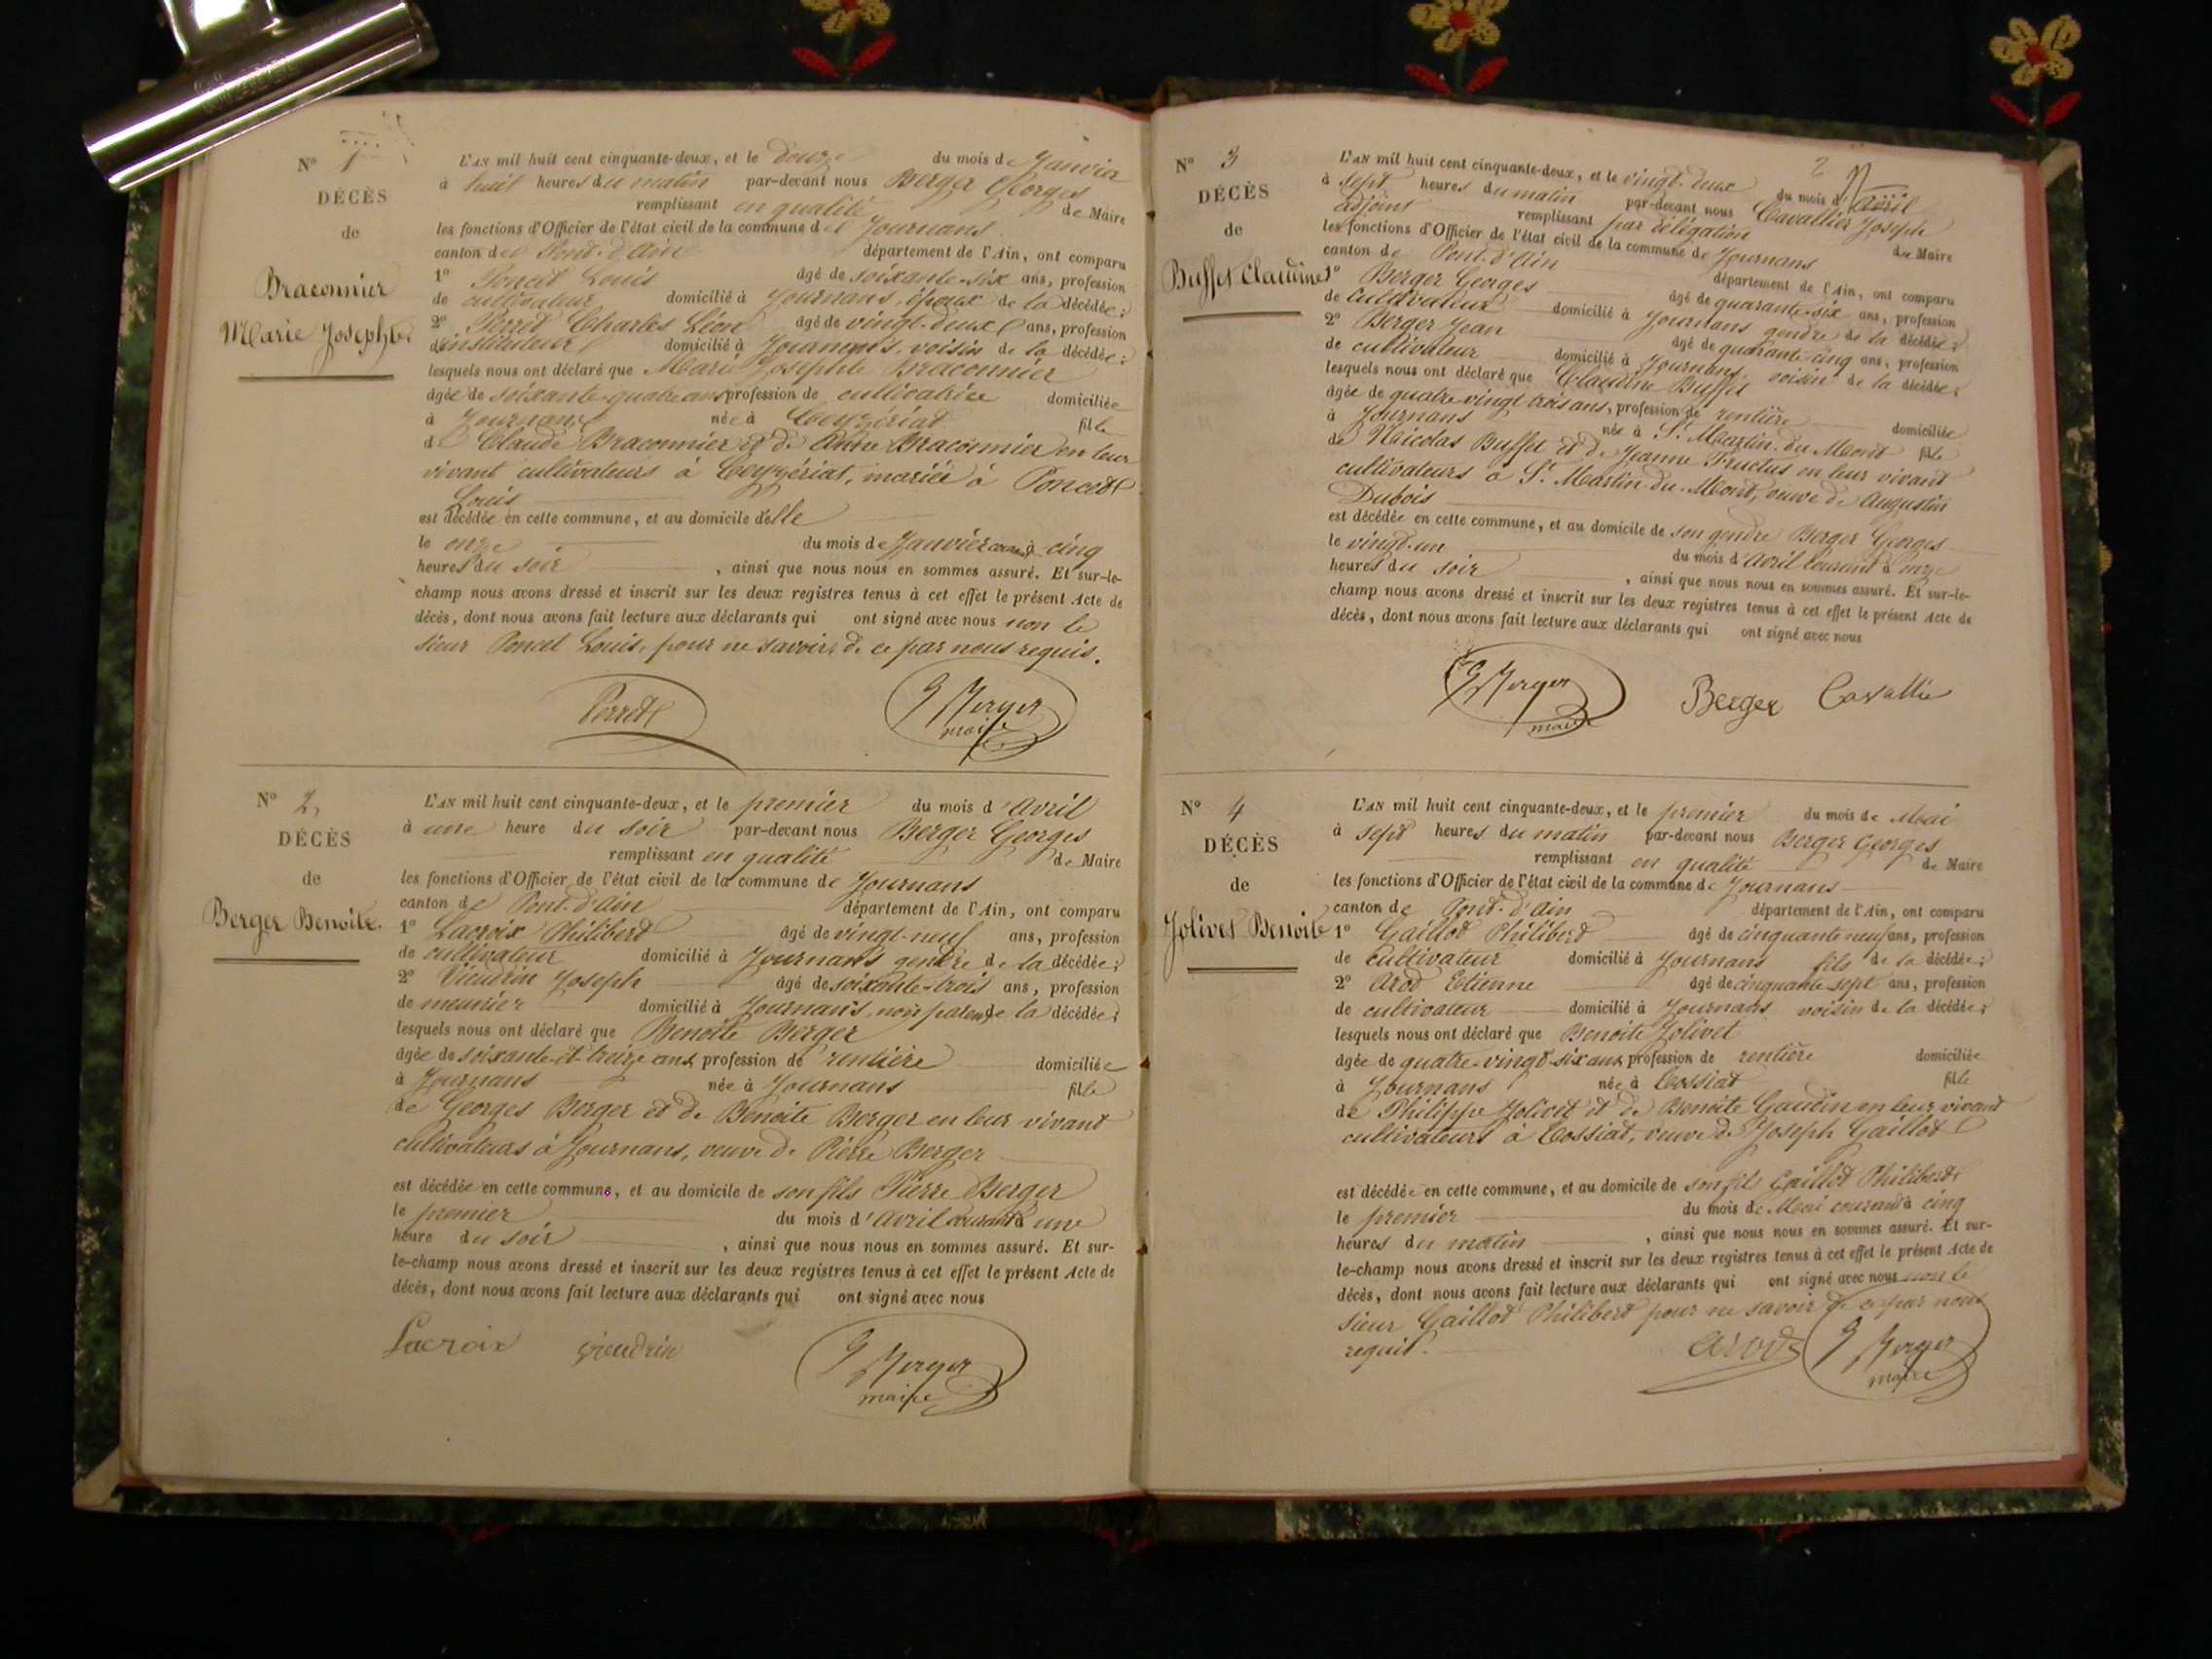 N° 1
DÉCÈS
de
Braconnier
Marie Josephte
L'AN mil huit cent cinquante-deux, et le douze du mois de Janvier
à huit heures du matin par-devant nous Berger Georges
remplissant en qualité de Maire
les fonctions d'Officier de l'état civil de la commune de Journans
canton de Pont-d'Ain département de l'Ain, ont comparu
1° Poncet Louis âgé de soixante-six ans, profession
de cultivateur domicilié à Journans, époux de la décédée;
2° Perret Charles Léon âgé de vingt-deux ans, profession
d'instituteur domicilié à Journans, voisin de la décédée;
lesquels nous ont déclaré que Marie Josephte Braconnier
âgée de soixante-quatre ans profession de cultivatrice domiciliée
à Journans née à Ceyzériat fille
de Claude Braconnier et de Anne Braconnier en leur
vivant cultivateurs à Ceyzériat, mariée à Poncet
Louis
est décédée en cette commune, et au domicile d'elle
le onze du mois de Janvier courant à cinq
heures du soir, ainsi que nous nous en sommes assuré. Et sur-le-
champ nous avons dressé et inscrit sur les deux registres tenus à cet effet le présent Acte de
décès, dont nous avons fait lecture aux déclarants qui ont signé avec nous non le
sieur Poncet Louis, pour ne savoir, de ce par nous requis.
Perret G Berger
maire
N° 2,
DÉCÈS
de
Berger Benoite.
L'AN mil huit cent cinquante-deux, et le premier du mois d'Avril
à une heure du soir par-devant nous Berger Georges
remplissant en qualité de Maire
les fonctions d'Officier de l'état civil de la commune de Journans
canton de Pont-d'Ain département de l'Ain, ont comparu
1° Lacroix Philibert âgé de vingt-neuf ans, profession
de cultivateur domicilié à Journans gendre de la décédée;
2° Vieudrin Joseph âgé de soixante-trois ans, profession
de meunier domicilié à Journans, non parent de la décédée;
lesquels nous ont déclaré que Benoite Berger
âgée de soixante-et-treize ans profession de rentière domiciliée
à Journans née à Journans fille
de Georges Berger et de Benoite Berger en leur vivant
cultivateurs à Journans, veuve de Pierre Berger
est décédée en cette commune, et au domicile de son fils Pierre Berger
le premier du mois d'Avril courant à une
heure du soir, ainsi que nous nous en sommes assuré. Et sur-
le-champ nous avons dressé et inscrit sur les deux registres tenus à cet effet le présent Acte de
décès, dont nous avons fait lecture aux déclarants qui ont signé avec nous
Lacroix vieudrin G Berger
maire
2
N° 3
DÉCÈS
de
Buffet Claudine
L'AN mil huit cent cinquante-deux, et le vingt-deux du mois d'Avril
à sept heures du matin par-devant nous Cavallier Joseph
adjoint remplissant par délégation du Maire
les fonctions d'Officier de l'état civil de la commune de Journans
canton de Pont-d'Ain département de l'Ain, ont comparu
1° Berger Georges âgé de quarante-six ans, profession
de cultivateur domicilié à Journans gendre de la décédée;
2° Berger Jean âgé de quarante-cinq ans, profession
de cultivateur domicilié à Journans voisin de la décédée;
lesquels nous ont déclaré que Claudine Buffet
âgée de quatre-vingt trois ans, profession de rentière domiciliée
à Journans née à St. Martin-du-Mont fille
de Nicolas Buffet et de Jeanne Fructus en leur vivant
cultivateurs à St. Martin-du-Mont, veuve de Augustin
Dubois
est décédée en cette commune, et au domicile de son gendre Berger Georges
le vingt-un du mois d'avril courant à onze
heures du soir, ainsi que nous nous en sommes assuré. Et sur-le-
champ nous avons dressé et inscrit sur les deux registres tenus à cet effet le présent Acte de
décès, dont nous avons fait lecture aux déclarants qui ont signé avec nous
G Berger Berger Cavallier
maire
N° 4
DÉCÈS
de
Jolivet Benoite
L'AN mil huit cent cinquante-deux, et le premier du mois de Mai
à sept heures du matin par-devant nous Berger Georges
remplissant en qualité de Maire
les fonctions d'Officier de l'état civil de la commune de Journans
canton de Pont-d'Ain département de l'Ain, ont comparu
1° Gaillot Philibert âgé de cinquante neuf ans, profession
de cultivateur domicilié à Journans fils de la décédée;
2° Arod Etienne âgé de cinquante-sept ans, profession
de cultivateur domicilié à Journans voisin de la décédée;
lesquels nous ont déclaré que Benoite Jolivet
âgée de quatre-vingt-six ans profession de rentière domiciliée
à Journans née à Tossiat fille
de Philippe Jolivet et de Benoite Gaudin en leur vivant
cultivateurs à Tossiat, veuve de Joseph Gaillot
est décédée en cette commune, et au domicile de son fils Gaillot Philibert
le premier du mois de Mai courant à cinq
heures du matin, ainsi que nous nous en sommes assuré. Et sur-
le-champ nous avons dressé et inscrit sur les deux registres tenus à cet effet le présent Acte de
décès, dont nous avons fait lecture aux déclarants qui ont signé avec nous non le
sieur Gaillot Philibert pour ne savoir de ce par nous
requis.
Arod G Berger
maire